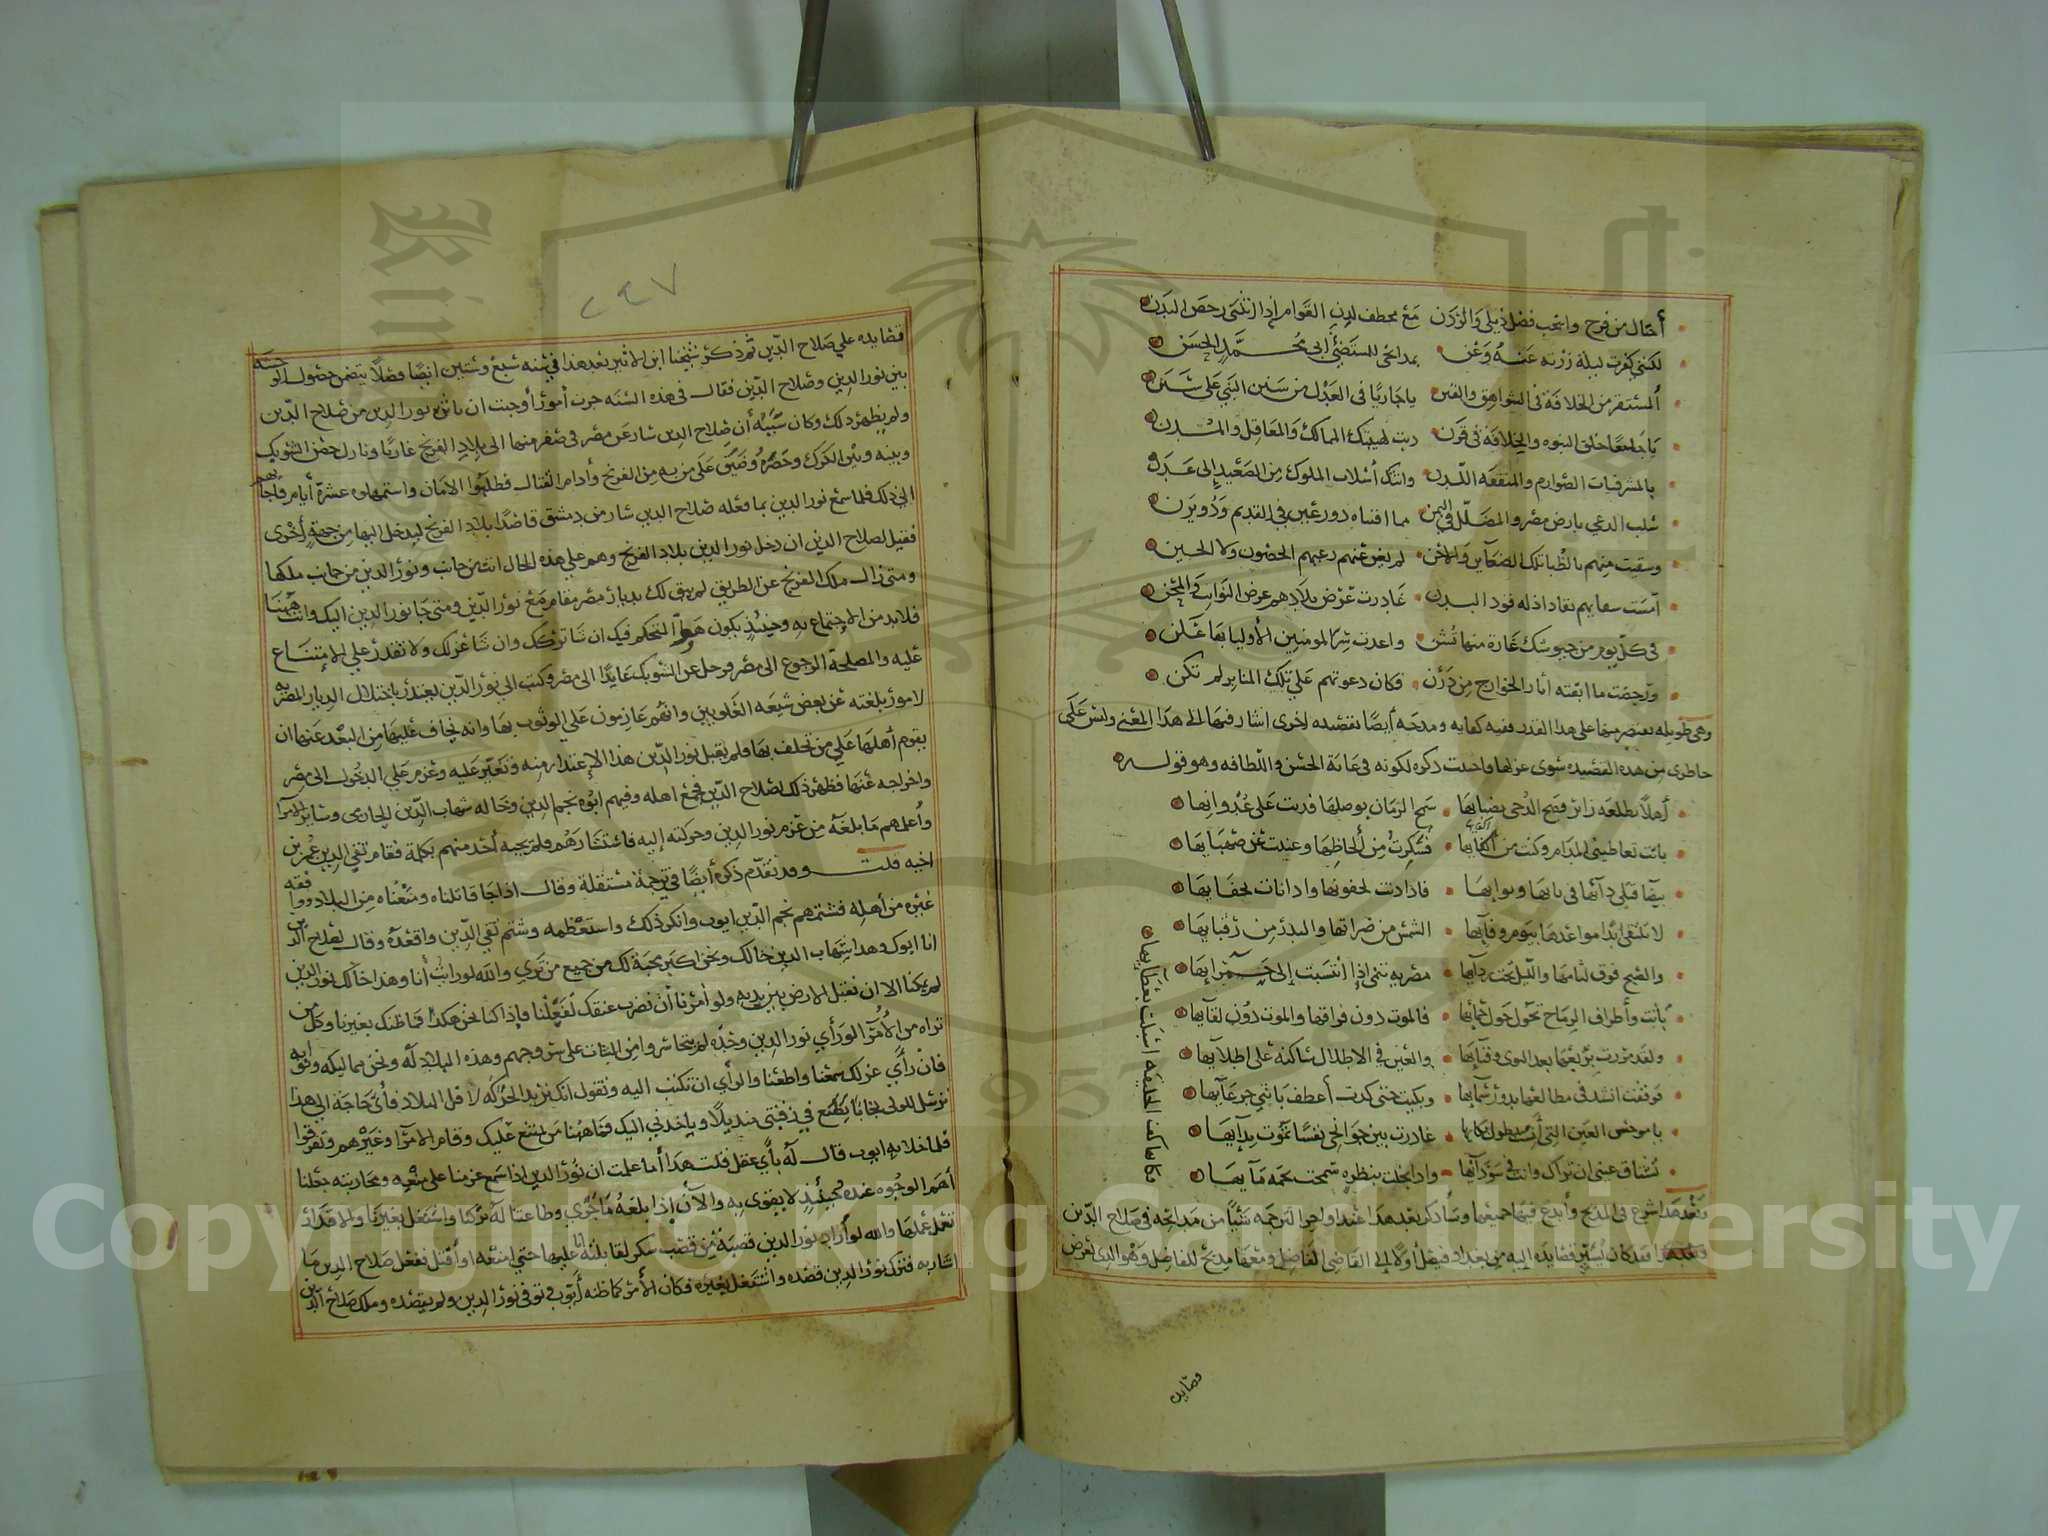 أختال من فرح واسحب فضل ذيلي والردن مع مخطف لدن القوام إذا انثنى رخص البدن
لكنني كفرت ليلة زرته عنه وعن بمدائحى للمستضئ ابى محمد الحسن
المستقر من الخلافة فى الشواهق والقنن يا جاريًا فى العدل من سنن النبي على سنن
يا جامعًا خلق النبوه والخلافة فى قرن دبت لهيبتك الممالك والمعاقل والمدن
بالمشرفيات الصوارم والمثقفه اللدن واتتك أسلاب الملوك من الصعيد إلى عدن
سلب الدعي بارض مصر والمضلل في اليمن مما اقتناه ذو رعين في القديم وذو يزن
وسقت منهم بالظبا تلك الضغاين والاحن لم يغن عنهم رعبهم الحصون ولا الحصن
غادرت عرض بلادهم عرض النوايب والمحن
فى كل يوم من جيوشك غارة منها تشن واعدت سر المومنين الأوليا بها علن
ورحضت ما ابقته اثار الخوارج من درن فكان دعوتهم علي تلك المنابر لم تكن
وهى طويله نقتصر منها على هذا القدر ففيه كفايه ومدحه أيضًا بقصيده اخرى اشار فيها الى هذا المعنى وليس على
خاطرى من هذه القصيده سوى غزلها واحببت ذكره لكونه فى غاية الحسن واللطافه وهو قوله
أهلًا بطلعه زاير فضح الدجى بضيايها سمح الزمان بوصلها فدنت على عدوايها
باتت تعاطيني المدام وكنت من أكفايها فسكرت من ألحاظها وغنيت عن صهبايها
لا تلتقي ابدًا مواعدها بيوم وفايها الشمس من ضراتها والبدر من رقبايها
والصبح فوق لثامها والليل تحت ردايها مضريه تنمى إذا انتسبت إلى حمرايها
باتت وأطراف الرماح تجول حول خبايها فالموت دون فراقها والموت دون لقايها
ولقد مررت بربعها بعد النوى وفنايها والعين في الاطلال ساكنة على اطلايها
فوقفت انشد فى مطالعها بدور سمايها وبكيت حتى كدت أعطف بانتي جرعايها
يا موحش العين التي أنست بطول بكايها غادرت بين جوانحى نفسًا تموت بدايها
تشتاق عيني ان تراك وانت في سودايها واذا بخلت بنظره سمحت بجمة مايها
فكانما كف الخليفه اسبلت بعطايها
وبعد هذا شرع فى المديح وأبدع فيها جميعها وسأذكر بعد هذا عند أواخر الترجمه شيئا من مدائحه في صلاح الدين
فقد كان يسير قصايده إليه من بغداد فيصل أولا إلى القاضى الفاضل ومعها مديح للفاضل وهو الذى يعرض
قصايده
٢٤٧
قصايده علي صلاح الدين ثم ذكر شيخنا ابن الاثير بعد هذا في سنه سبع وستين أيضا فصلا يتضمن حصول الوحشه
بين نور الدين وصلاح الدين فقال فى هذه السنه جرت أمور أوجبت ان تاثر نور الدين من صلاح الدين
ولم يظهر ذلك وكان سببه أن صلاح الدين سار عن مصر فى صفر منها الى بلاد الفرنج غازيا ونازل حصن الشوبك
وبينه وبين الكرك وحصره وضيق على من به من الفرنج وأدام القتال فطلبوا الامان واستمهلوه عشرة أيام فاجابهم
الى ذلك فلما سمع نور الدين بما فعله صلاح الدين سار من دمشق قاصدا بلاد الفرنج ليدخل اليها من جهة أخرى
فقيل لصلاح الدين ان دخل نور الدين بلاد الفرنج وهم علي هذه الحال انت من جانب ونور الدين من جانب ملكها
ومتى زال ملك الفرنج عن الطريق لم يبق لك بديار مصر مقام مع نور الدين ومتى جا نور الدين اليك وانت ههنا
فلا بد من الاجتماع به وحينئذ يكون هو المتحكم فيك ان شا تركك وان شا عزلك ولا تقدر علي الامتناع
عليه والمصلحة الرجوع الى مصر فرحل عن الشوبك عايدًا الى مصر وكتب الي نور الدين يعتذر باختلال الديار المصريه
لامور بلغته عن بعض شيعه العلويين وانهم عازمون علي الوثوب بها وانه يخاف عليها من البعد عنها ان
يقوم أهلها علي من تخلف بها فلم يقبل نور الدين هذا الإعتذار منه وتغير عليه وعزم علي الدخول الى مصر
واخراجه عنها فظهر ذلك لصلاح الدين فجمع اهله وفيهم ابوه نجم الدين وخاله شهاب الدين الحارمى وساير الامرا
وأعلمهم ما بلغه من عزم نور الدين وحركته إليه فاستشارهم فلم يجبه أحد منهم بكلمة فقام تقي الدين عمر بن
اخيه قلت وقد تقدم ذكره أيضًا في ترجمة مستقلة وقال اذا جا قاتلناه ومنعناه من البلاد ووافقه
غيره من أهله فشتمهم نجم الدين ايوب وانكر ذلك واستعظمه وشتم تقي الدين واقعده وقال لصلاح الدين
انا ابوك وهذا شهاب الدين خالك ونحن اكثر محبة لك من جميع من تري والله لو رايت أنا وهذا خالك نور الدين
لم يمكنا الا ان نقبل الارض بين يديه ولو امرنا أن نضرب عنقك لفعلنا فإذا كنا نحن هكذا فما ظنك بغيرنا وكل من
تراه من الأمرا لو رأي نور الدين وحده لم يتجاسروا من الثبات على سروجهم وهذه البلاد له ونحن مماليكه ونوابه
فان رأي عزلك سمعنا واطعنا والرأي ان تكتب اليه وتقول انك تريد الحركه لاجل البلاد فأي حاجة الى هذا
نرسل المولى نجابا يضع في رقبتى منديلًا وياخذني اليك فما ههنا من يمتنع عليك وقام الامرا وغيرهم وتفرقوا
فلما خلا به ايوب قال له بأي عقل فعلت هذا أما علمت ان نور الدين اذا سمع عزمنا على منعه ومحاربته جعلنا
أهم الوجوه عنده وحينئذ لا نقوى به والآن إذا بلغه ما جرى وطاعتنا له تركنا واشتغل بغيرنا والاقدار
تعمل عملها والله لو أراد نور الدين قصبة من قصب سكر لقاتلته أنا عليها حتي امنعه او أقتل ففعل صلاح الدين ما
اشار به فترك نور الدين قصده واشتغل بغيره فكان الأمر كما ظنه أيوب توفى نور الدين ولم يقصده وملك صلاح الدين
Copyright © King Saud University
1957